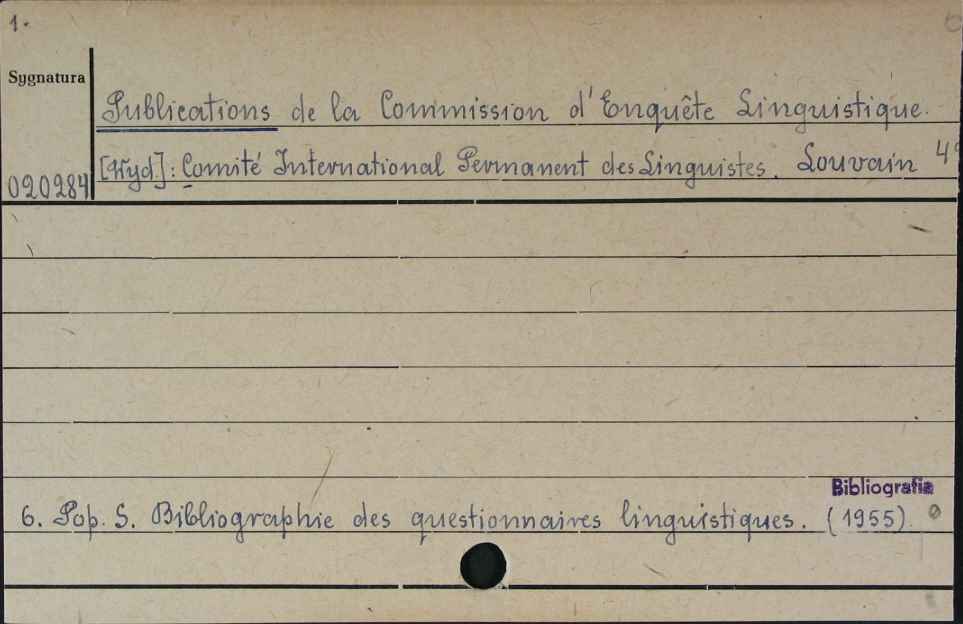 1.
Sygnatura
Publications de la Commission d'Enquête Linguistique.
[Wyd.]: Comité International Permanent des Linguistes. Louvain 4°
020284
Bibliografia
6. Pop. S. Bibliographie des questionnaires linguistiques. (1955)